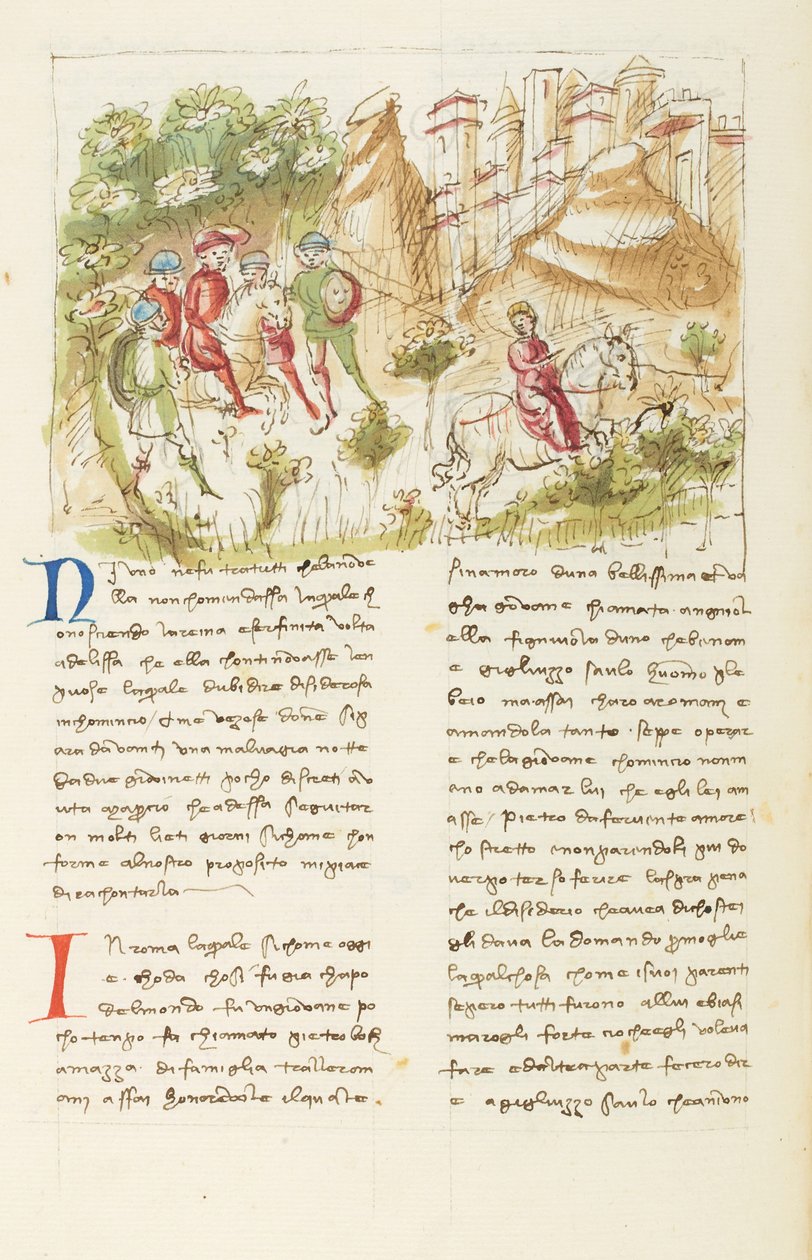 NIuno nefu tratutti chelanove
lla non chomendassa laquale ch
onosciendo lareina eserfinita volta
adelissa che ella chontinovasse len
puose laquale dubidire disiderosa
inchomincio / Ame vezose donne sip
ara davanti una malvagia notte
da due giovinetti pocho discreti av
uta ma percio che adessa seguitar
on molti lieti giorni sichome chon
forme alnostro proposito mi piace
dirachontarla
IN roma laquale sichome oggi
e choda chosi fu gia chapo
delmondo fu un giovane po
cho tenpo fa chiamato pietro boch
amazza di famiglia tralle rom
ani assai honorevole ilquale
sinamoro duna bellissima et va
gha giovane chiamata angniol
ella figliuola duno chebe nom
e gigliuzzo saulo huomo ple
beio ma assai charo a romani e
amandola tanto seppe operar
e che la giovane chomincio nonm
eno ad amar lui che egli lei am
asse / Pietro da fervente amore
cho stretto enonparendoli piu do
ver poter soferire laspra pena
che il disiderio cheavea dichostei
gli dava la domando per moglie
laqualchosa chome isuoi parenti
sepero tutti furono allui e biasi
marogli forte cio che egli voleva
fare e daltra parte fecero dir
e a gigliuzzo saulo che aniuno